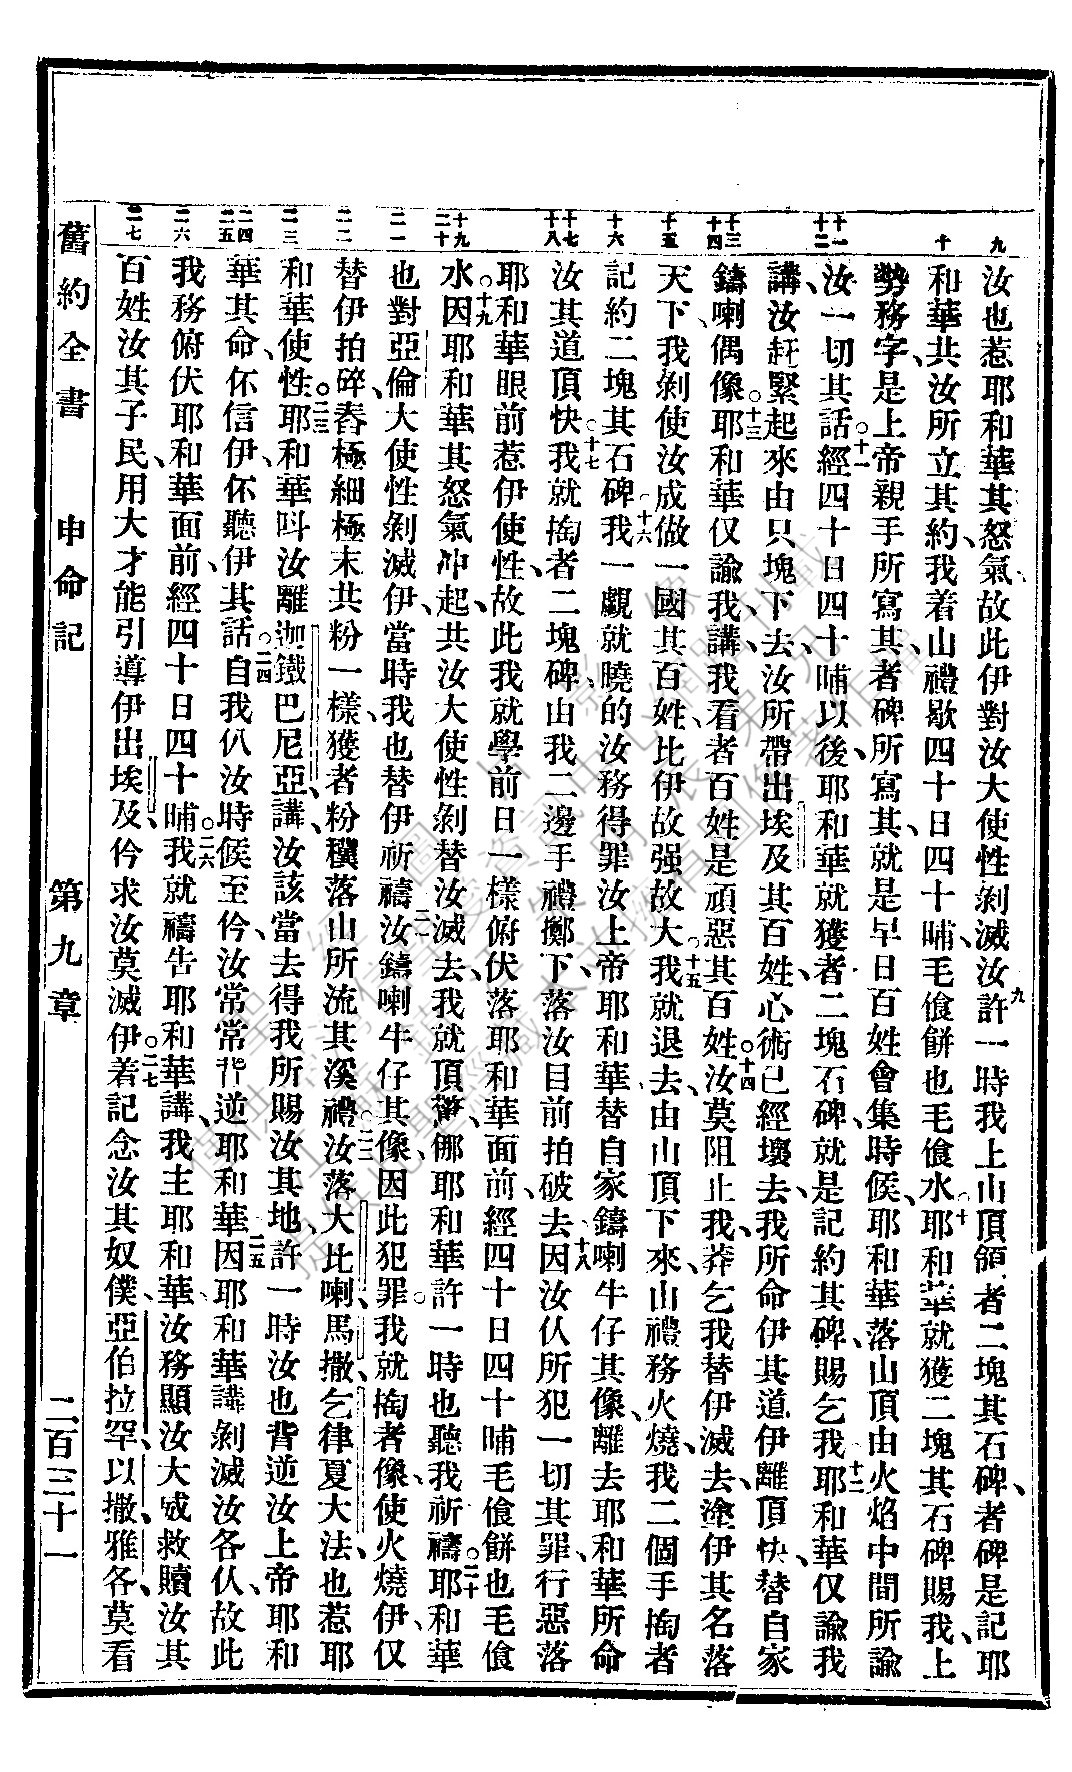 汝也惹耶和華其怒氣故此伊對汝大使性剝滅汝九許一時我上山頂領者二塊其石碑、者碑是記耶
和華共汝所立其約、我着山禮歇四十日四十晡、毛飡餅也毛飡水、十耶和華就獲二塊其石碑賜我、上
勢務字是上帝親手所寫其、者碑所寫其、就是早日百姓會集時候、耶和華落山頂由火焰中間所諭
汝、一切其話。十一經四十日四十晡以後、耶和華就獲者二塊石碑、就是記約其碑、賜乞我、十二耶和華仅諭我
講、汝赶緊起來由只塊下去、汝所帶出埃及其百姓、心術已經壞去、我所命伊其道、伊離頂快、替自家
鑄喇偶像。十三耶和華仅諭我、講、我看者百姓、是頑惡其百姓。十四汝莫阻止我、莽乞我替伊滅去、塗伊其名落
天下、我剝使汝成做一國其百姓、比伊故强故大、十五我就退去、由山頂下來、山禮務火燒、我二個手掏者
記約二塊其石碑、十六我一覷就曉的汝務得罪汝上帝耶和華、替自家鑄喇牛仔其像、離去耶和華所命
汝其道頂快、十七我就掏者二塊碑、由我二邊手禮擲下、落汝目前拍破去、十八因汝仈所犯一切其罪、行惡落
耶和華眼前惹伊使性、故此我就學前日一樣俯伏落耶和華面前、經四十日四十晡毛飡餅也毛飡
水、。十九因耶和華其怒氣冲起、共汝大使性剝替汝滅去、我就頂驚、㑚耶和華許一時也聽我祈禱。二十耶和華
也對亞倫大使性剝滅伊、當時我也替伊祈禱、二一汝鑄喇牛仔其像、因此犯罪。我就掏者像、使火燒伊、仅
替伊拍碎、舂極細極末共粉一樣、獲者粉穰落山所流其溪禮。二二汝落大比喇、馬撒、乞律夏大法、也惹耶
和華使性。二三耶和華叫汝離迦鐵巴尼亞、講、汝該當去得我所賜汝其地、許一時汝也背逆汝上帝耶和
華其命、伓信伊、伓聽伊其話。二四自我仈汝時候至仱、汝常常背逆耶和華、二五因耶和華講剝滅汝各仈、故此
我務俯伏耶和華面前、經四十日四十晡。二六我就禱告耶和華講、我主耶和華、汝務顯汝大威救贖汝其
百姓、汝其子民、用大才能引導伊出埃及、仱求汝莫滅伊。二七着記念汝其奴僕、亞伯拉罕、以撒、雅各、莫看
舊約全書　申命記　第九章　二百三十一
九
十
十一
十二
十三
十四
十五
十六
十七
十八
十九
二十
二一
二二
二三
二四
二五
二六
二七